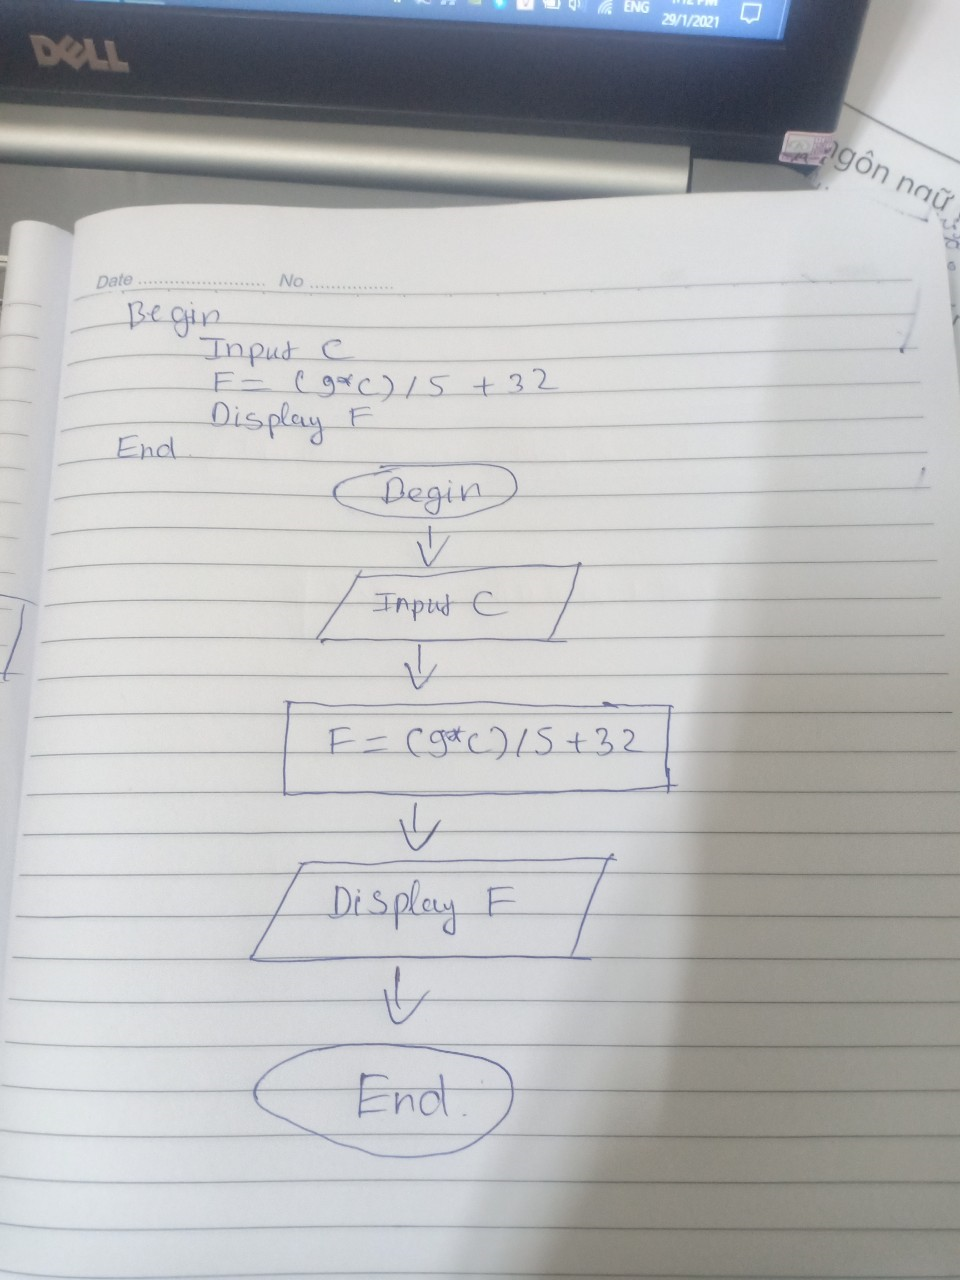 DELL
ENG
29/1/2021
ngôn ngữ
Date ........................ No ................
Begin
Input C
F = (9*C)/5 + 32
Display F
End
Begin
Input C
F = (9*C)/5 + 32
Display F
End.